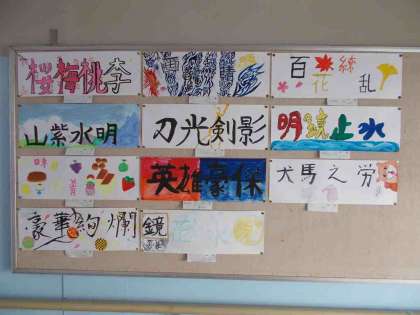 桜梅桃李
百花繚乱
山紫水明
刀光剣影
明鏡止水
英雄豪傑
犬馬之労
豪華絢爛
鏡花水月